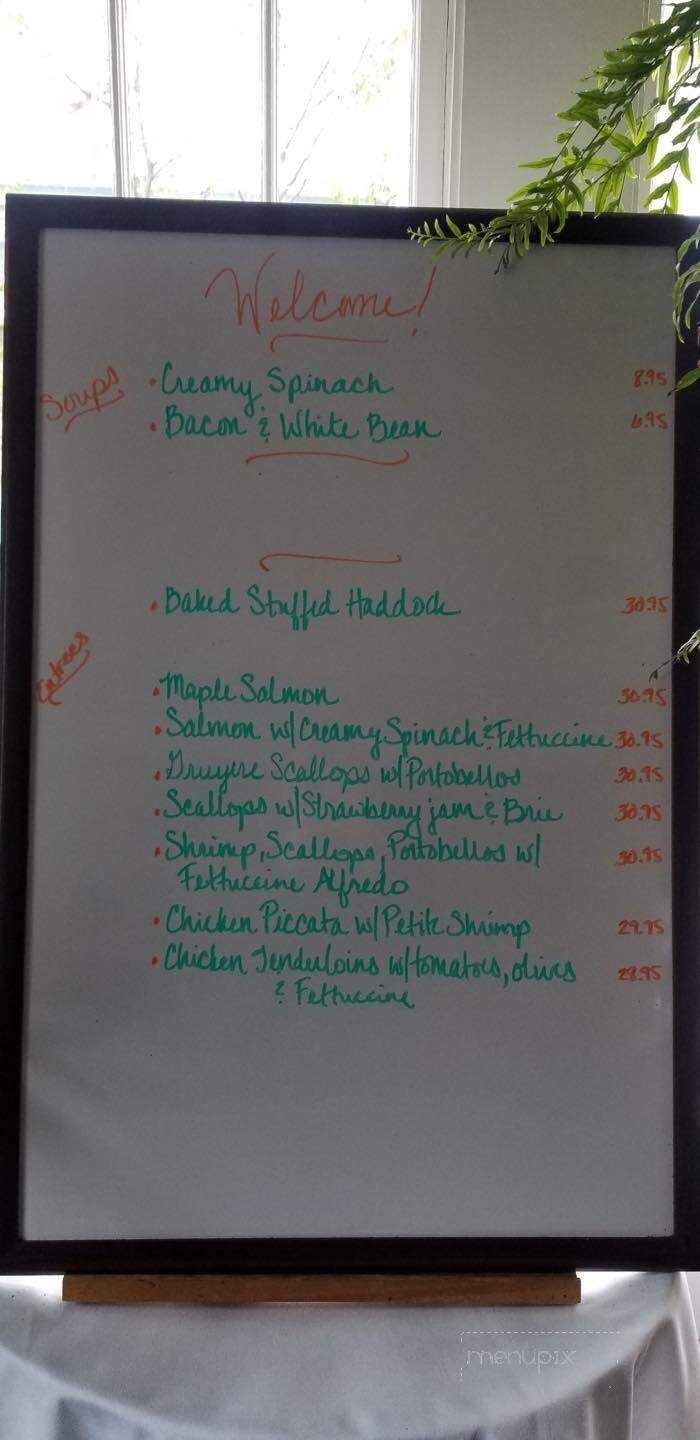 Welcome!
Soups
• Creamy Spinach 8.95
• Bacon & White Bean 6.95
• Baked Stuffed Haddock 30.95
Entrees
• Maple Salmon 30.95
• Salmon w/Creamy Spinach & Fettuccine 30.95
• Gruyere Scallops w/Portobellos 30.95
• Scallops w/Strawberry jam & Brie 30.95
• Shrimp, Scallops, Portobellos w/ 30.95
Fettuccine Alfredo
• Chicken Piccata w/Petite Shrimp 29.95
• Chicken Tenderloins w/tomatoes, olives 28.95
& Fettuccine
menupix